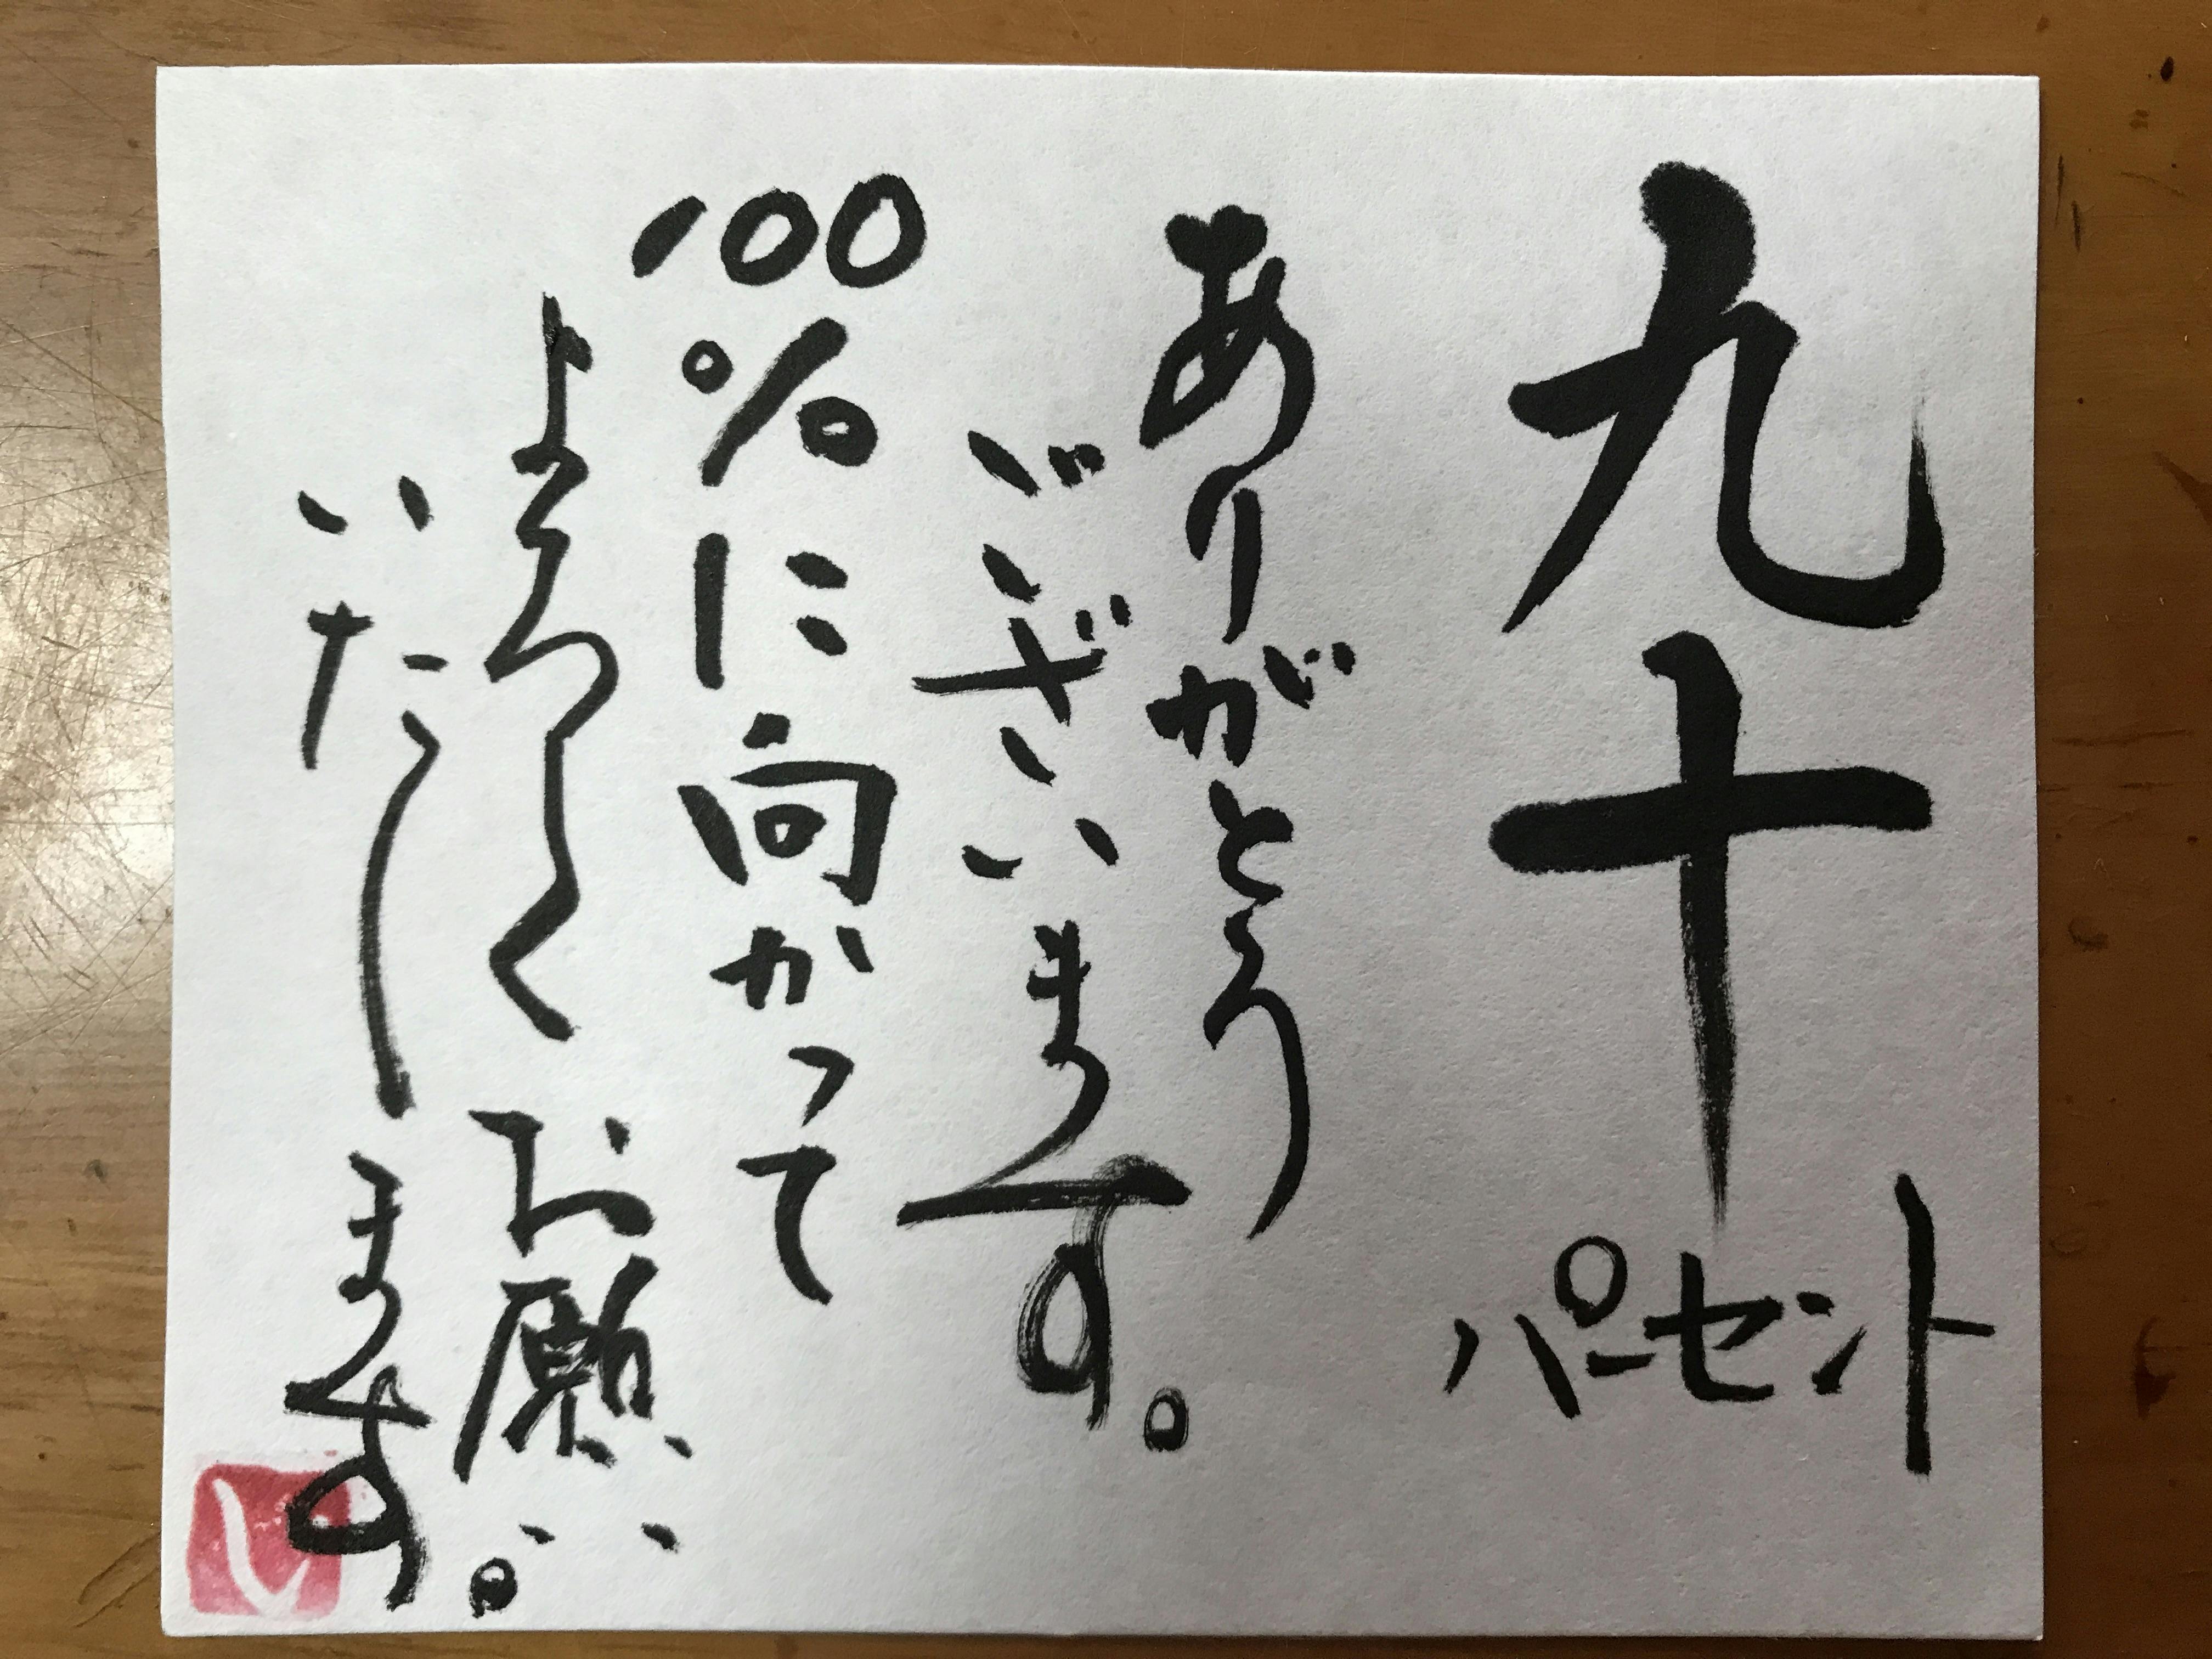 九十パーセント
ありがとう
ございます。
100%に向かって
よろしくお願い
いたします。
し